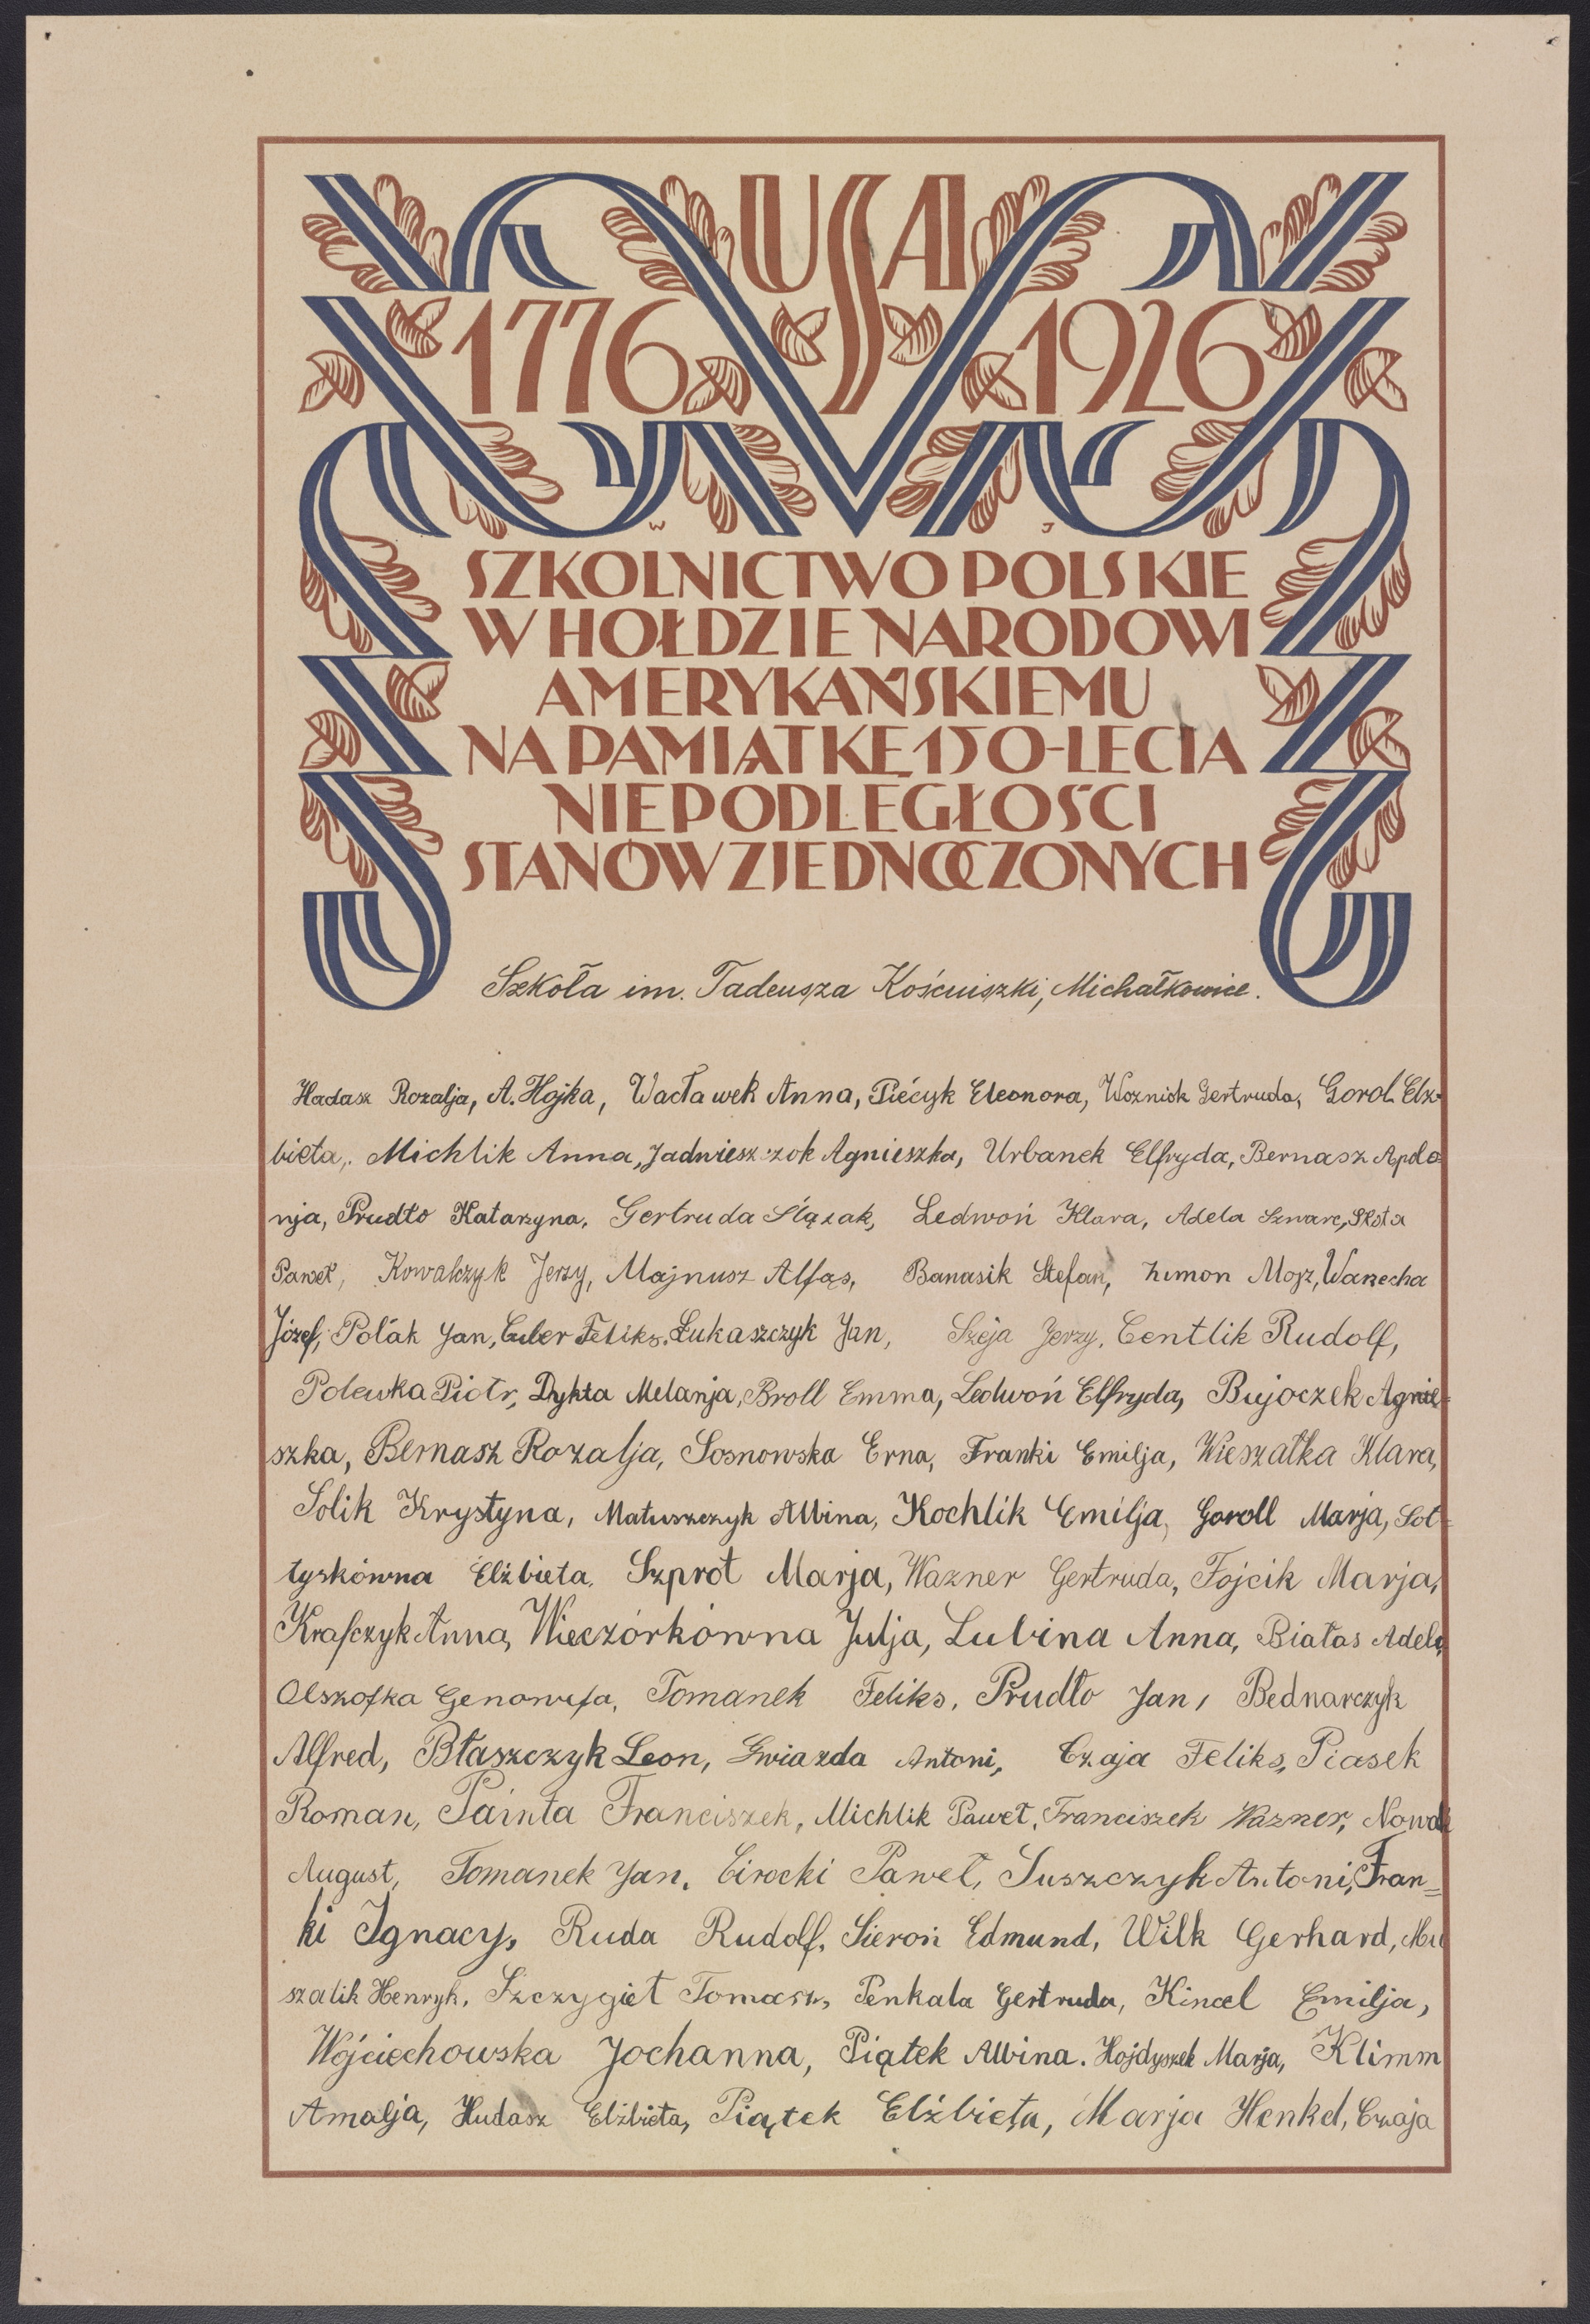 USA
1776 1926
W J
SZKOLNICTWO POLSKIE
W HOŁDZIE NARODOWI
AMERYKAŃSKIEMU
NA PAMIĄTKĘ 150-LECIA
NIEPODLEGŁOŚCI
STANÓW ZJEDNOCZONYCH
Szkoła im. Tadeusza Kościuszki, Michałkowice.
Hadasz Rozalja, A. Hojka, Wacławek Anna, Piécyk Eleonora, Wozniok Gertruda, Gorol Elż-
bieta, Michlik Anna, Jadwiszczok Agnieszka, Urbanek Elfryda, Bernasz Apolo
nja, Prudło Katarzyna, Gertruda Ślązak, Ledwoń Klara, Adela Szwarc, Skóta
Paweł, Kowalczyk Jerzy, Majnusz Alfąs, Banasik Stefan, Zimon Mojż, Warzecha
Józef, Polak Jan, Cuber Feliks, Łukaszczyk Jan, Szeja Jerzy, Centlik Rudolf,
Polewka Piotr, Dykta Melanja, Broll Emma, Ledwoń Elfryda, Bujoczek Agnie-
szka, Bernasz Rozalja, Sosnowska Erna, Franki Emilja, Wieszałka Klara,
Solik Krystyna, Matuszczyk Albina, Kochlik Emilja, Goroll Marja, Soł-
tyskówna Elżbieta, Szprot Marja, Wazner Gertruda, Fojcik Marja,
Krafczyk Anna, Wieczórkówna Julja, Lubina Anna, Białas Adela,
Olszofka Genowefa, Tomanek Feliks, Prudło Jan, Bednarczyk
Alfred, Błaszczyk Leon, Gwiazda Antoni, Czaja Feliks, Piasek
Roman, Painta Franciszek, Michlik Paweł, Franciszek Wazner, Nowak
August, Tomanek Jan, Cirocki Paweł, Suszczyk Antoni, Fran=
ki Ignacy, Ruda Rudolf, Sieroń Edmund, Wilk Gerhard, Mu
szalik Henryk, Szczygieł Tomasz, Penkala Gertruda, Kincel Emilja,
Wojciechowska Jochanna, Piątek Albina. Hojdyszek Marja, Klimm
Amalja, Hudasz Elżbieta, Piątek Elżbieta, Marja Henkel, Czaja